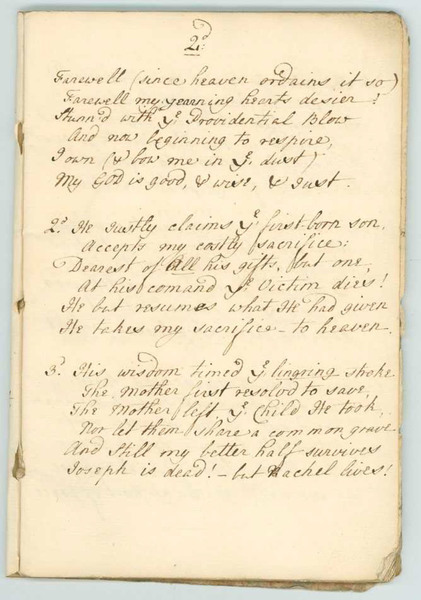 2.d
Farewell (since heaven ordains it so)
Farewell my yearning heerts desier!
Stunn'd with ye Providential Blow
And now beginning to respire,
I own (& bow me in ye dust)
My God is good, & wise, & Just.
2.d He Justly claims ye first-born son,
Accepts my costly sacrifice:
Dearest of All his gifts, but one,
At his comand ye Victim dies!
He but resumes what He had given
He takes my sacrifice - to heaven.
3.d His wisdom timed ye lingring stroke
The Mother first resolvd to save,
The Mother left ye Child He took,
Nor let them share a common grave
And Still my better half survives
Joseph is dead! - but Rachel lives!